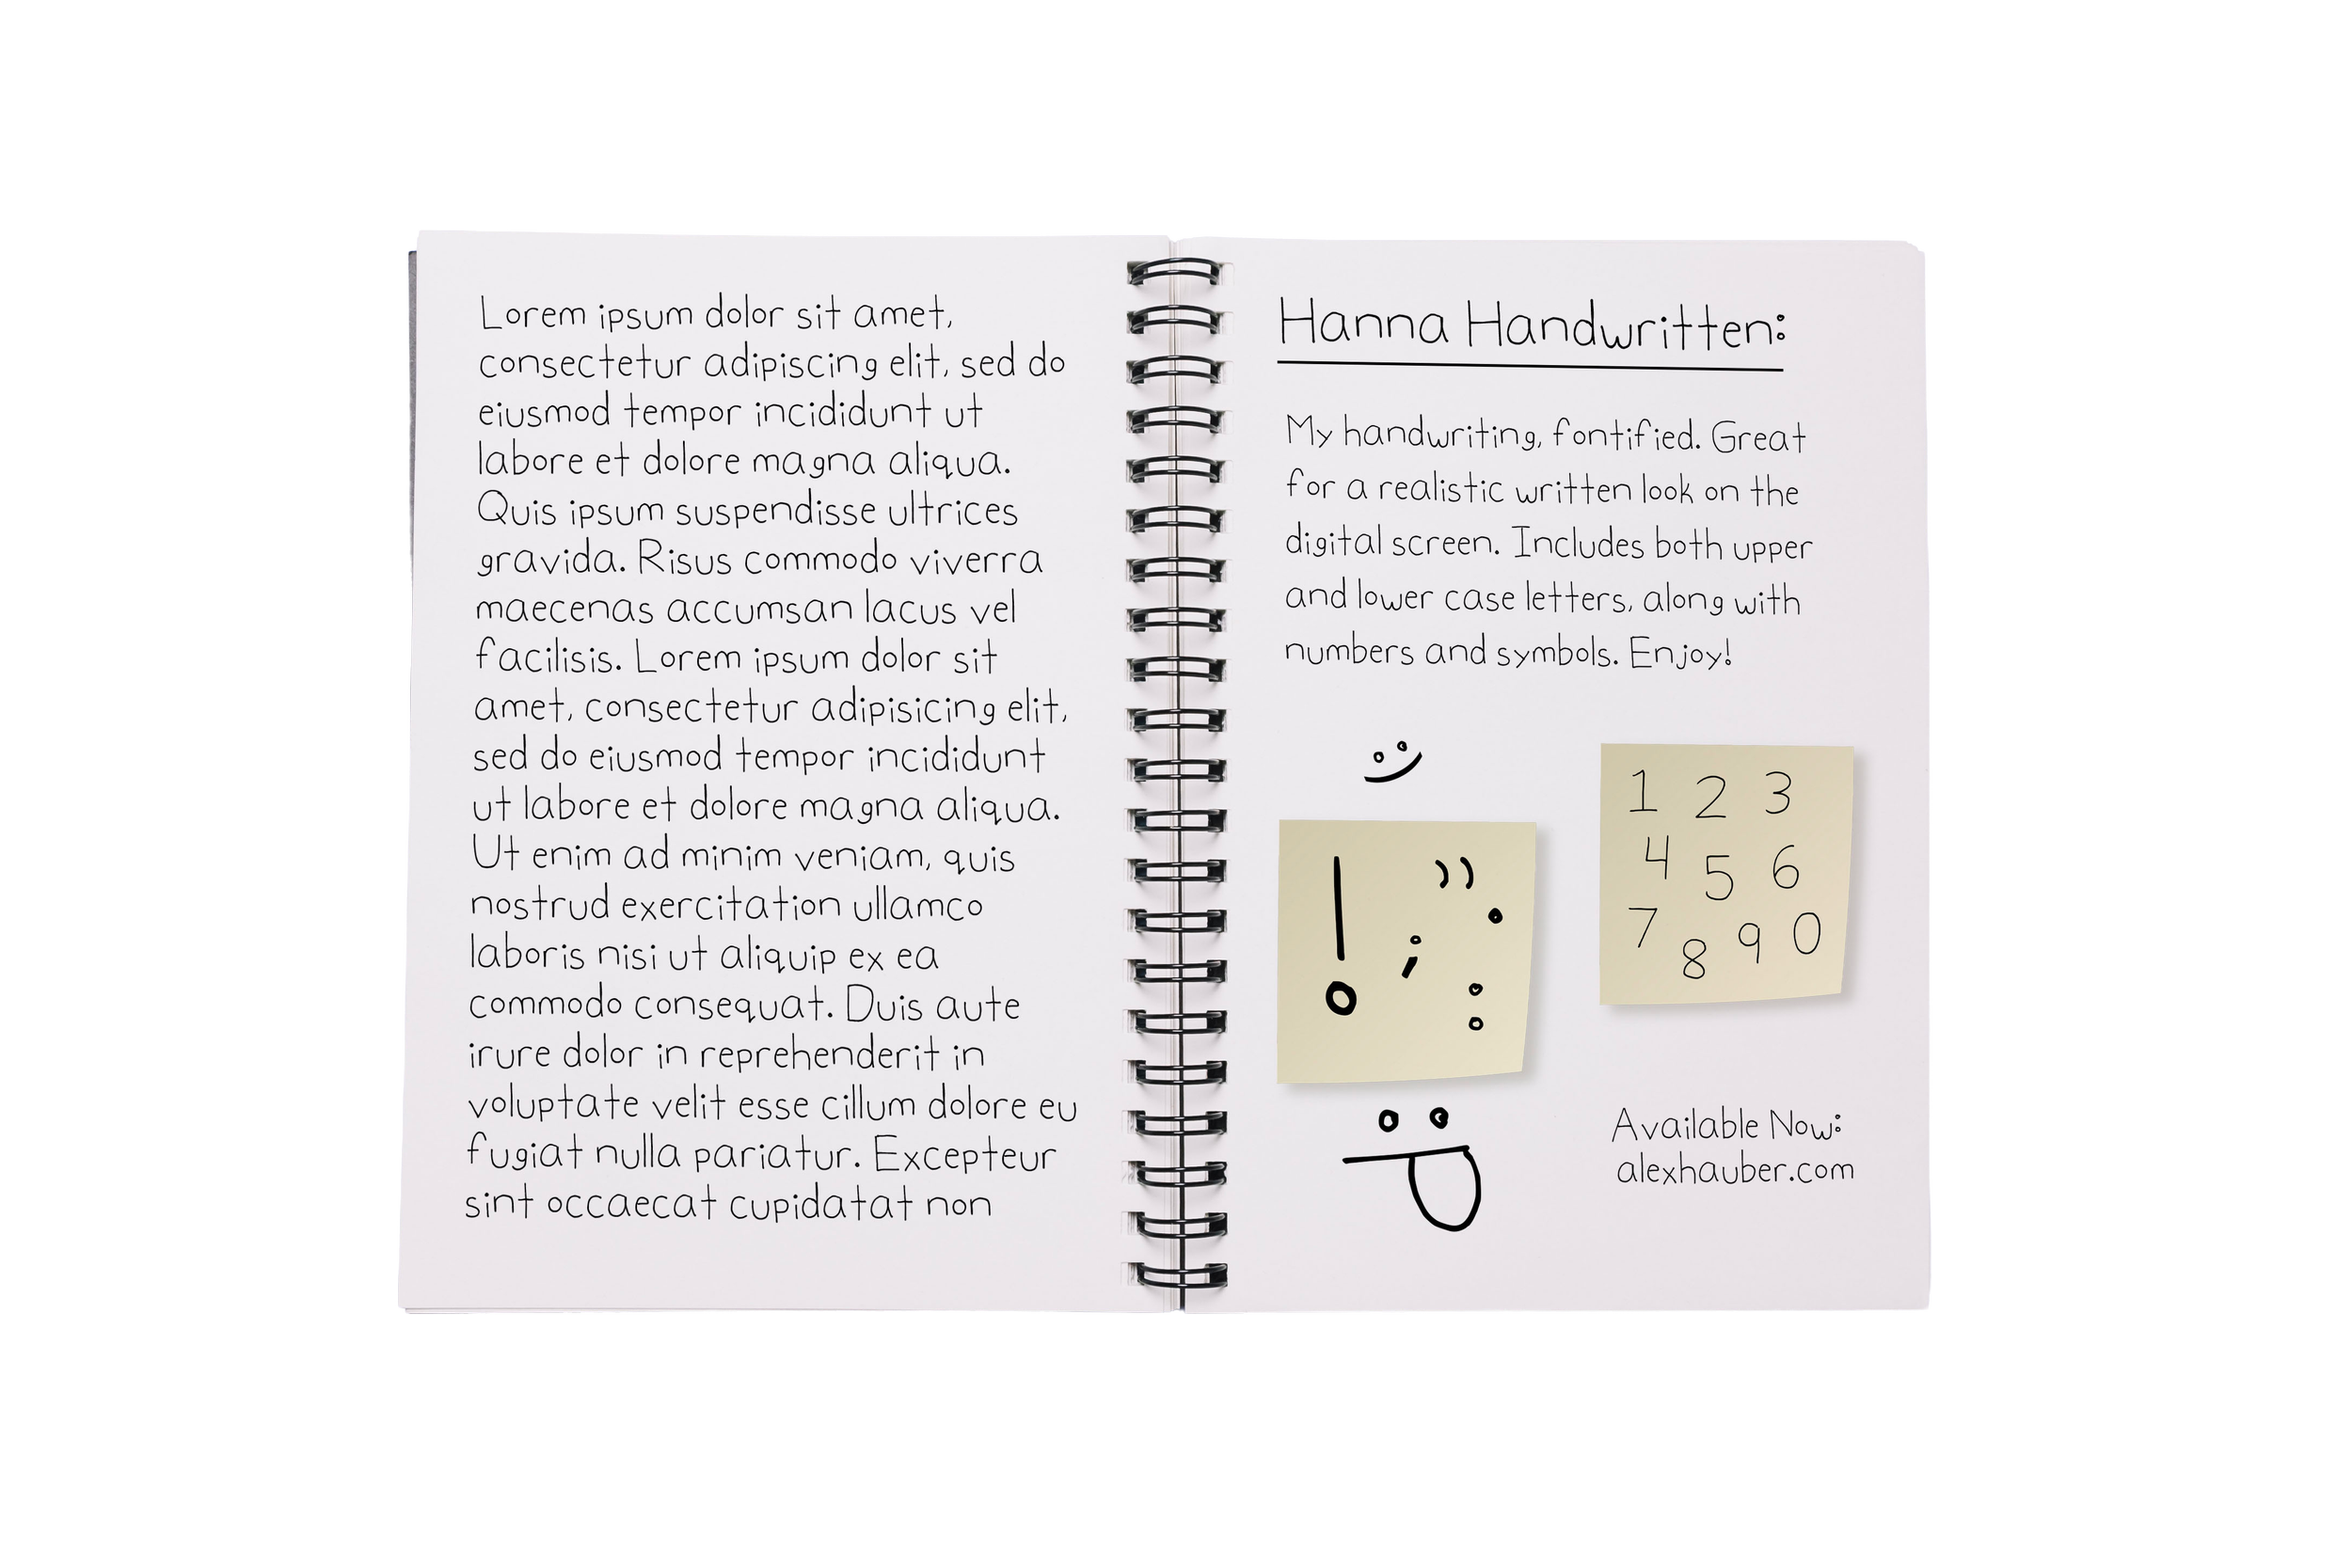 Lorem ipsum dolor sit amet,
consectetur adipiscing elit, sed do
eiusmod tempor incididunt ut
labore et dolore magna aliqua.
Quis ipsum suspendisse ultrices
gravida. Risus commodo viverra
maecenas accumsan lacus vel
facilisis. Lorem ipsum dolor sit
amet, consectetur adipisicing elit,
sed do eiusmod tempor incididunt
ut labore et dolore magna aliqua.
Ut enim ad minim veniam, quis
nostrud exercitation ullamco
laboris nisi ut aliquip ex ea
commodo consequat. Duis aute
irure dolor in reprehenderit in
voluptate velit esse cillum dolore eu
fugiat nulla pariatur. Excepteur
sint occaecat cupidatat non
Hanna Handwritten:
My handwriting, fontified. Great
for a realistic written look on the
digital screen. Includes both upper
and lower case letters, along with
numbers and symbols. Enjoy!
! " . ; :
1 2 3
4 5 6
7 8 9 0
Available Now:
alexhauber.com